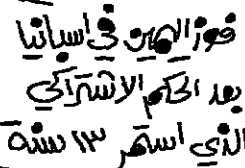 فوز اليمين في اسبانيا
بعد الحكم الاشتراكي
الذي استمر ١٣ سنة